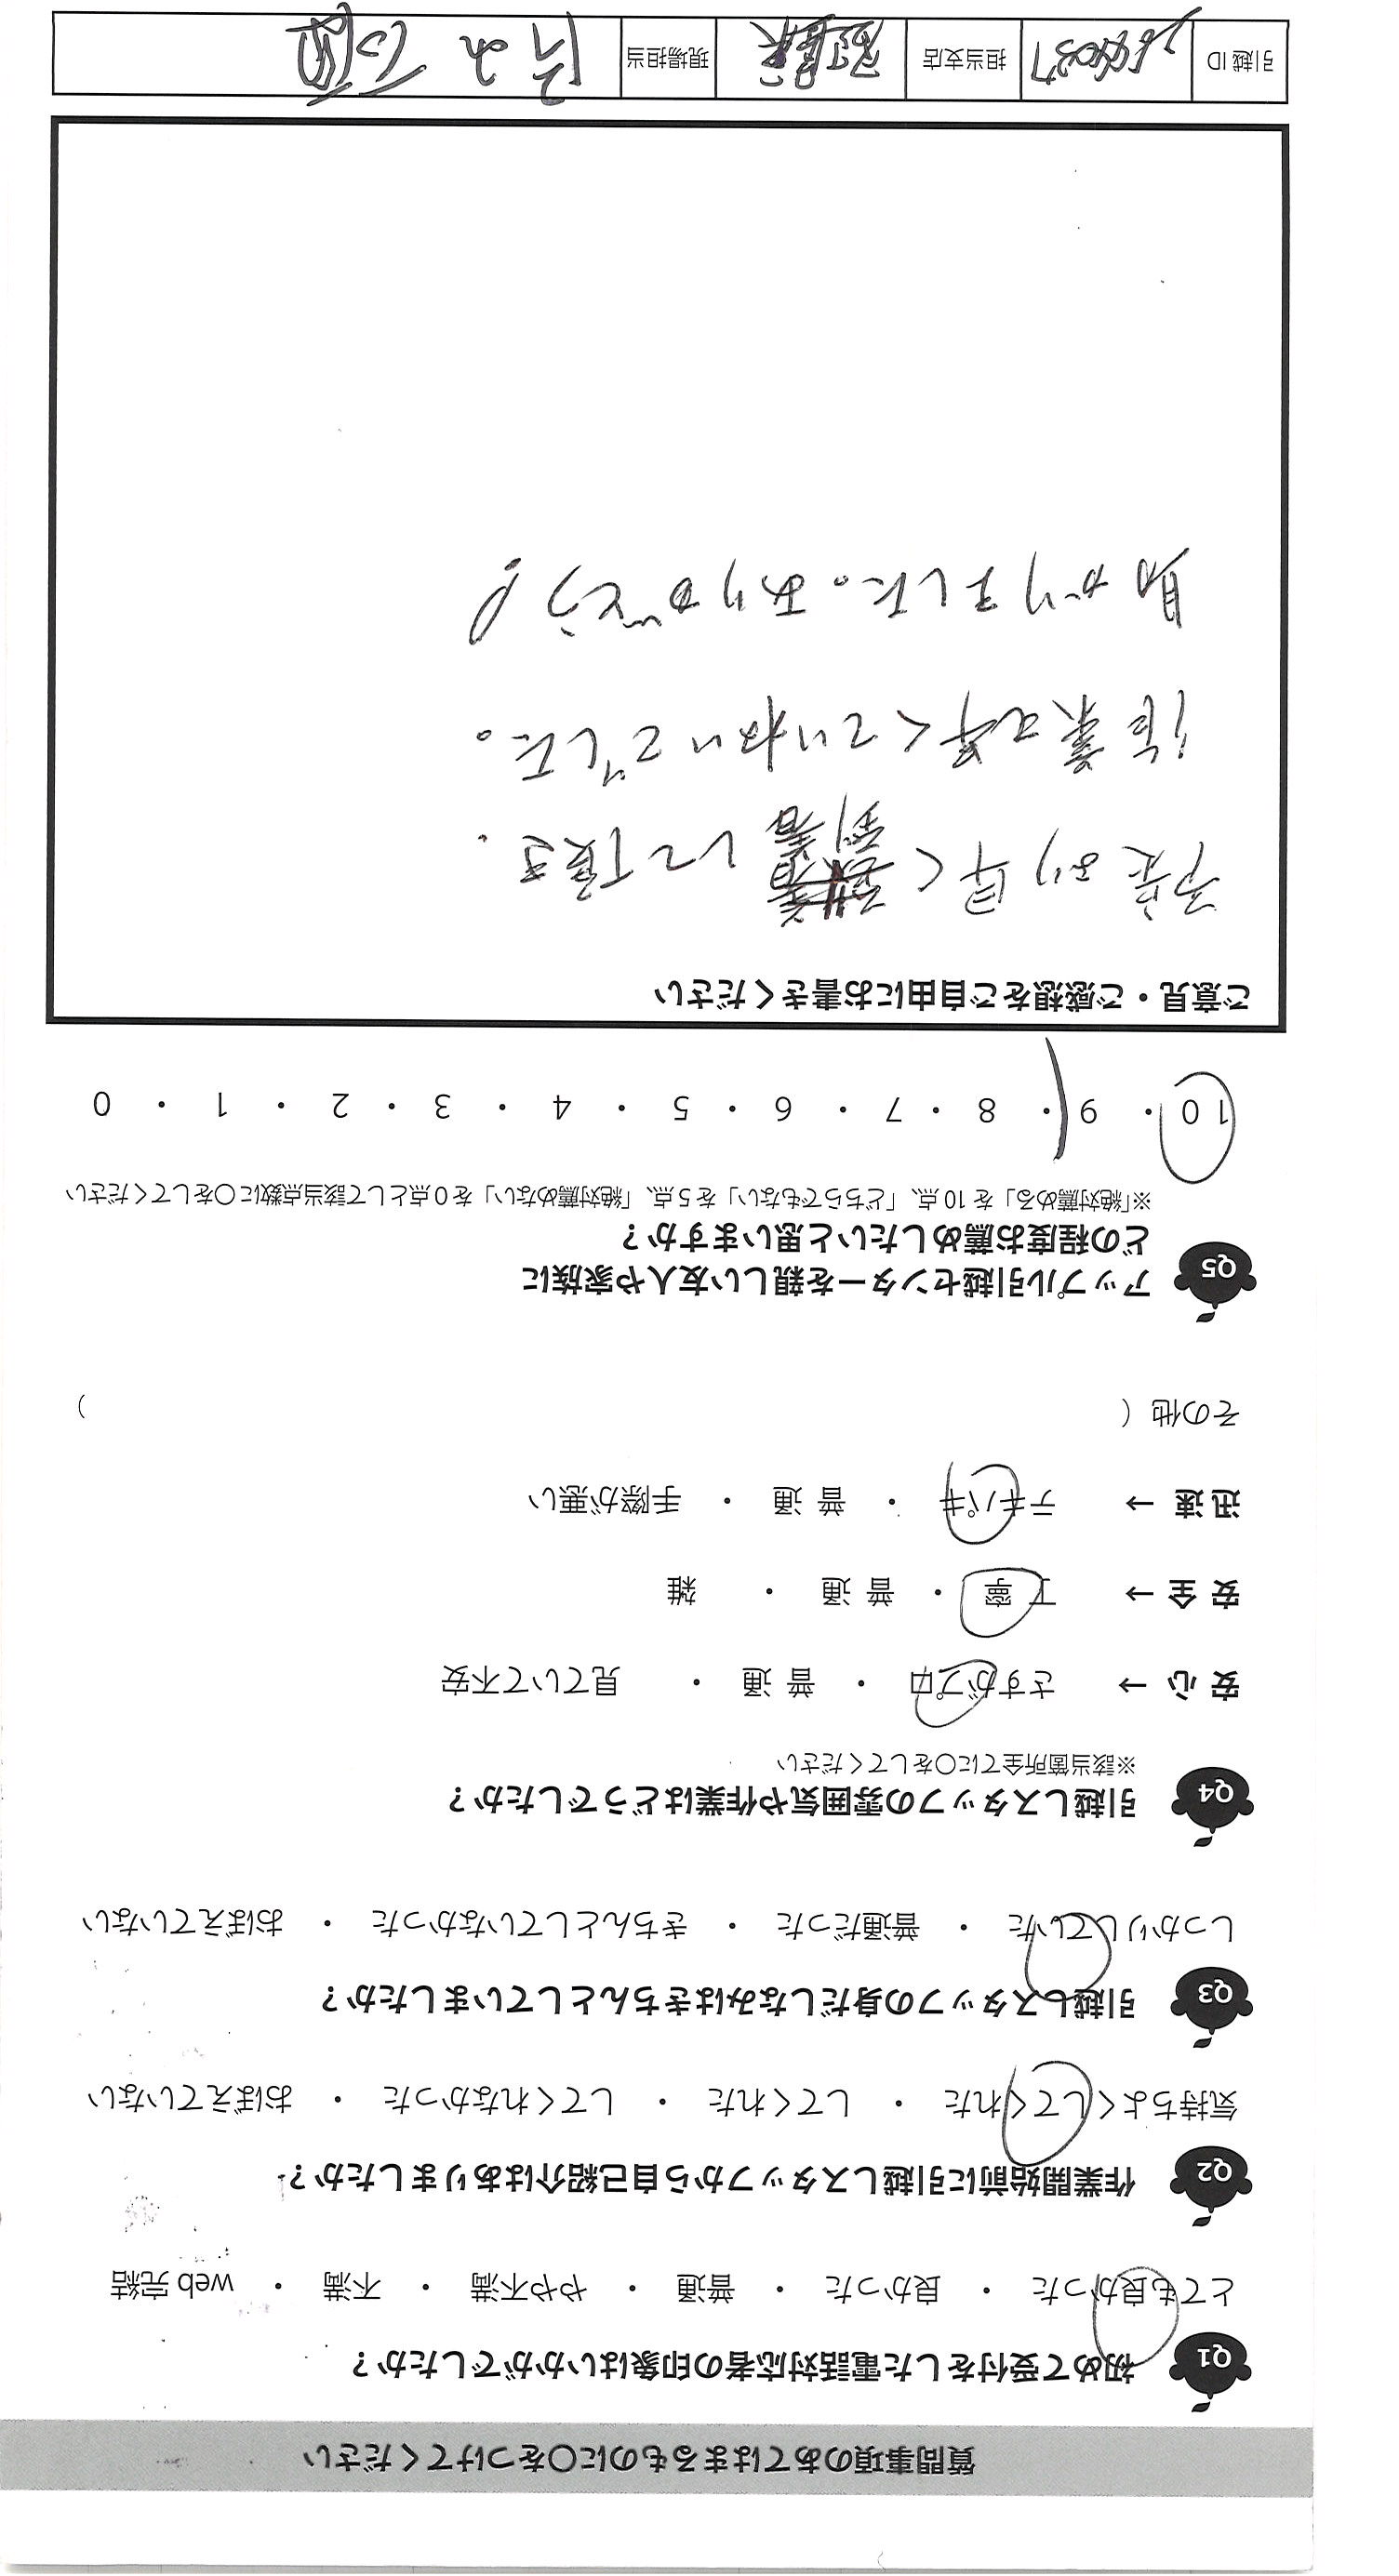 質問事項のあてはまるものに〇をつけてください
Q1 初めて受付をした電話対応者の印象はいかがでしたか？
とても良かった ・ 良かった ・ 普通 ・ やや不満 ・ 不満 ・ web 完結
Q2 作業開始前に引越しスタッフから自己紹介はありましたか？
気持ちよくしてくれた ・ してくれた ・ してくれなかった ・ おぼえていない
Q3 引越しスタッフの身だしなみはきちんとしていましたか？
しっかりしていた ・ 普通だった ・ きちんとしていなかった ・ おぼえていない
Q4 引越しスタッフの雰囲気や作業はどうでしたか？
※該当箇所全てに〇をしてください
安 心 → さすがプロ ・ 普 通 ・ 見ていて不安
安 全 → 丁 寧 ・ 普 通 ・ 雑
迅 速 → テキパキ ・ 普 通 ・ 手際が悪い
その他（ ）
Q5 アップル引越センターを親しい友人や家族に
どの程度お薦めしたいと思いますか？
※「絶対薦める」を 10 点、「どちらでもない」を 5 点、「絶対薦めない」を 0 点として該当点数に〇をしてください
10 ・ 9 ・ 8 ・ 7 ・ 6 ・ 5 ・ 4 ・ 3 ・ 2 ・ 1 ・ 0
ご意見・ご感想をご自由にお書きください
予定より早く到着して頂き、
作業も早くていねいでした。
助かりました。ありがとう！
引越 ID 担当支店 現場担当